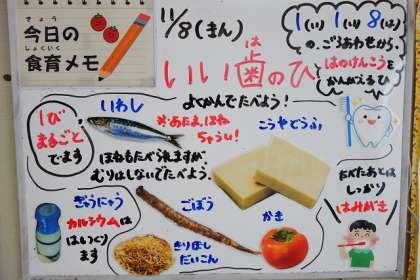 きょう
今日の
しょくいく
食育メモ
11/8(まん)
は
いい歯のひ
1(い) 1(い) 8(は)
の、ごろあわせから、
はのけんこうを
かんがえるひ
よくかんでたべよう!
1ぴ
まるごと
でます
いわし
※あたま、ほね
ちゅうい!
ほねもたべられますが、
むりはしないでたべよう。
こうやどうふ
ぎゅうにゅう
カルシウムは
はいってり
ます
ごぼう
きりぼし
だいこん
かき
たべたあとは
しっかり
はみがき